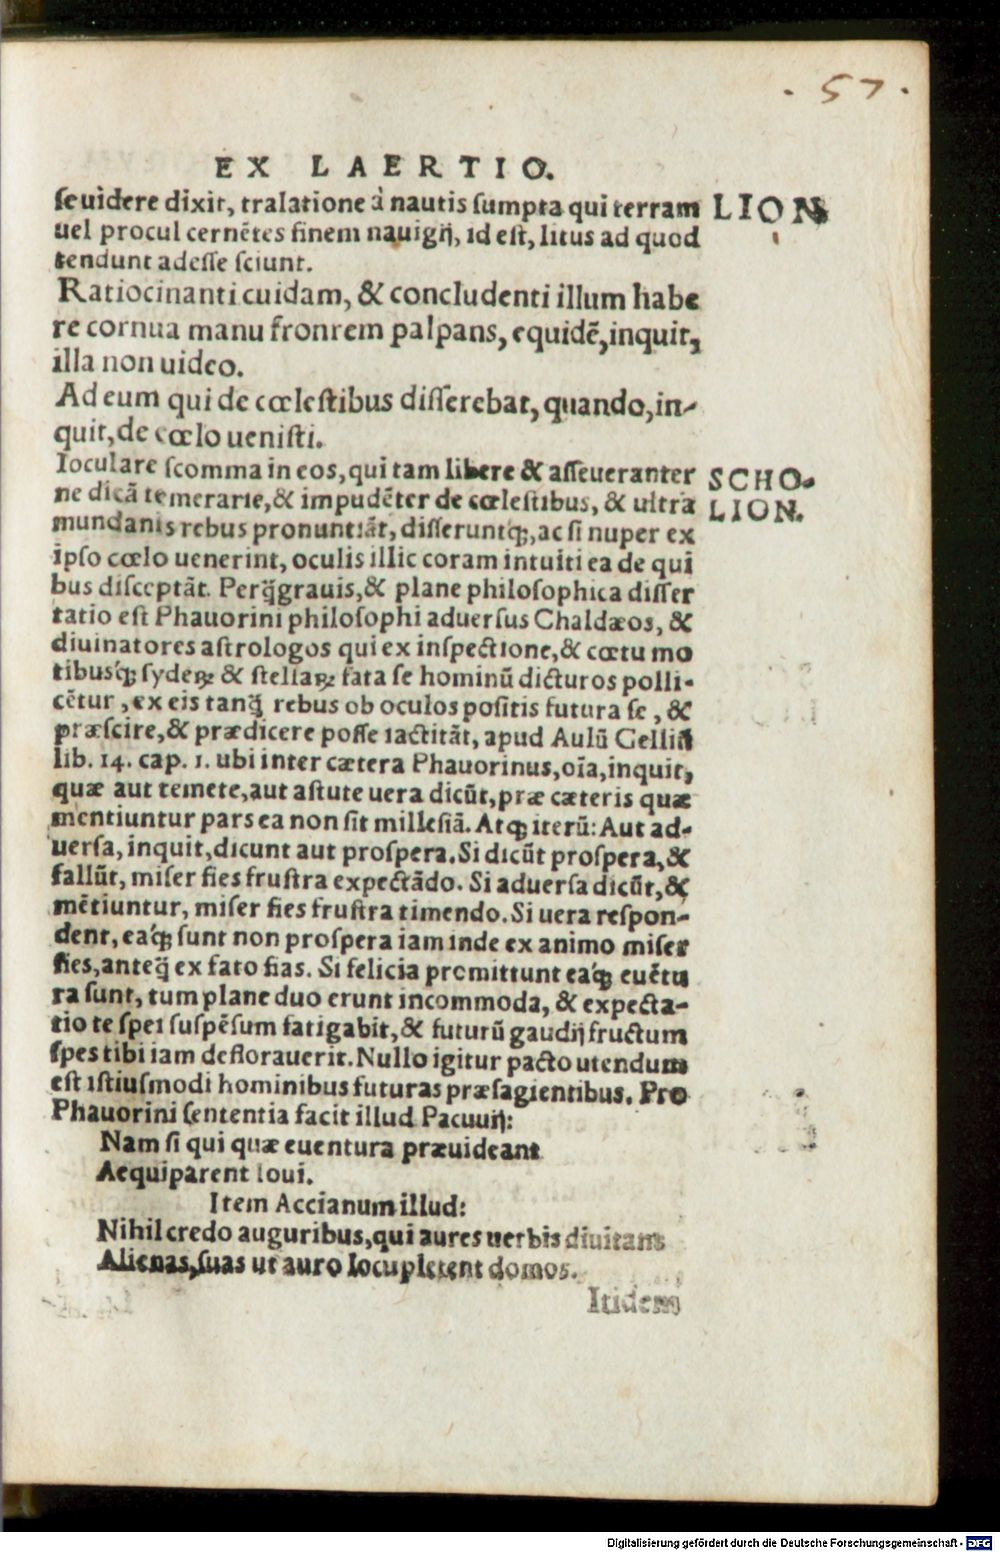 . 57 .
EX LAERTIO.
se uidere dixit, tralatione à nautis sumpta qui terram LION
uel procul cernētes finem nauigij, id est, litus ad quod
tendunt adesse sciunt.
Ratiocinanti cuidam, & concludenti illum habe
re cornua manu fronrem palpans, equidē, inquit,
illa non uideo.
Ad eum qui de cœlestibus disserebat, quando, in-
quit, de cœlo uenisti.
Ioculare scomma in eos, qui tam libere & asseueranter SCHO-
ne dicā temerarie, & impudēter de cœlestibus, & ultra LION.
mundanis rebus pronuntiāt, disseruntq́;, ac si nuper ex
ipso cœlo uenerint, oculis illic coram intuiti ea de qui
bus disceptāt. Perq̃grauis, & plane philosophica disser
tatio est Phauorini philosophi aduersus Chaldæos, &
diuinatores astrologos qui ex inspectione, & cœtu mo
tibusq́; syderꝝ & stellaꝝ fata se hominū dicturos polli-
cētur, ex eis tanq̃ rebus ob oculos positis futura se, &
præscire, & prædicere posse iactitāt, apud Aulū Gelliū
lib. 14. cap. 1. ubi inter cætera Phauorinus, oīa, inquit,
quæ aut temete, aut astute uera dicūt, præ cæteris quæ
mentiuntur pars ea non sit millesiā. Atq; iterū: Aut ad-
uersa, inquit, dicunt aut prospera. Si dicūt prospera, &
fallūt, miser fies frustra expectādo. Si aduersa dicūt, &
mētiuntur, miser fies frustra timendo. Si uera respon-
dent, eaq́; sunt non prospera iam inde ex animo miser
fies, anteq̃ ex fato fias. Si felicia promittunt eaq́; euētu
ra sunt, tum plane duo erunt incommoda, & expecta-
tio te spei suspēsum fatigabit, & futurū gaudij fructum
spes tibi iam deflorauerit. Nullo igitur pacto utendum
est istiusmodi hominibus futuras præsagientibus. Pro
Phauorini sententia facit illud Pacuuij:
Nam si qui quæ euentura præuideant
Aequiparent Ioui.
Item Accianum illud:
Nihil credo auguribus, qui aures uerbis diuitans
Alienas, suas ut auro locupletent domos.
Itidem
Digitalisierung gefördert durch die Deutsche Forschungsgemeinschaft - DFG